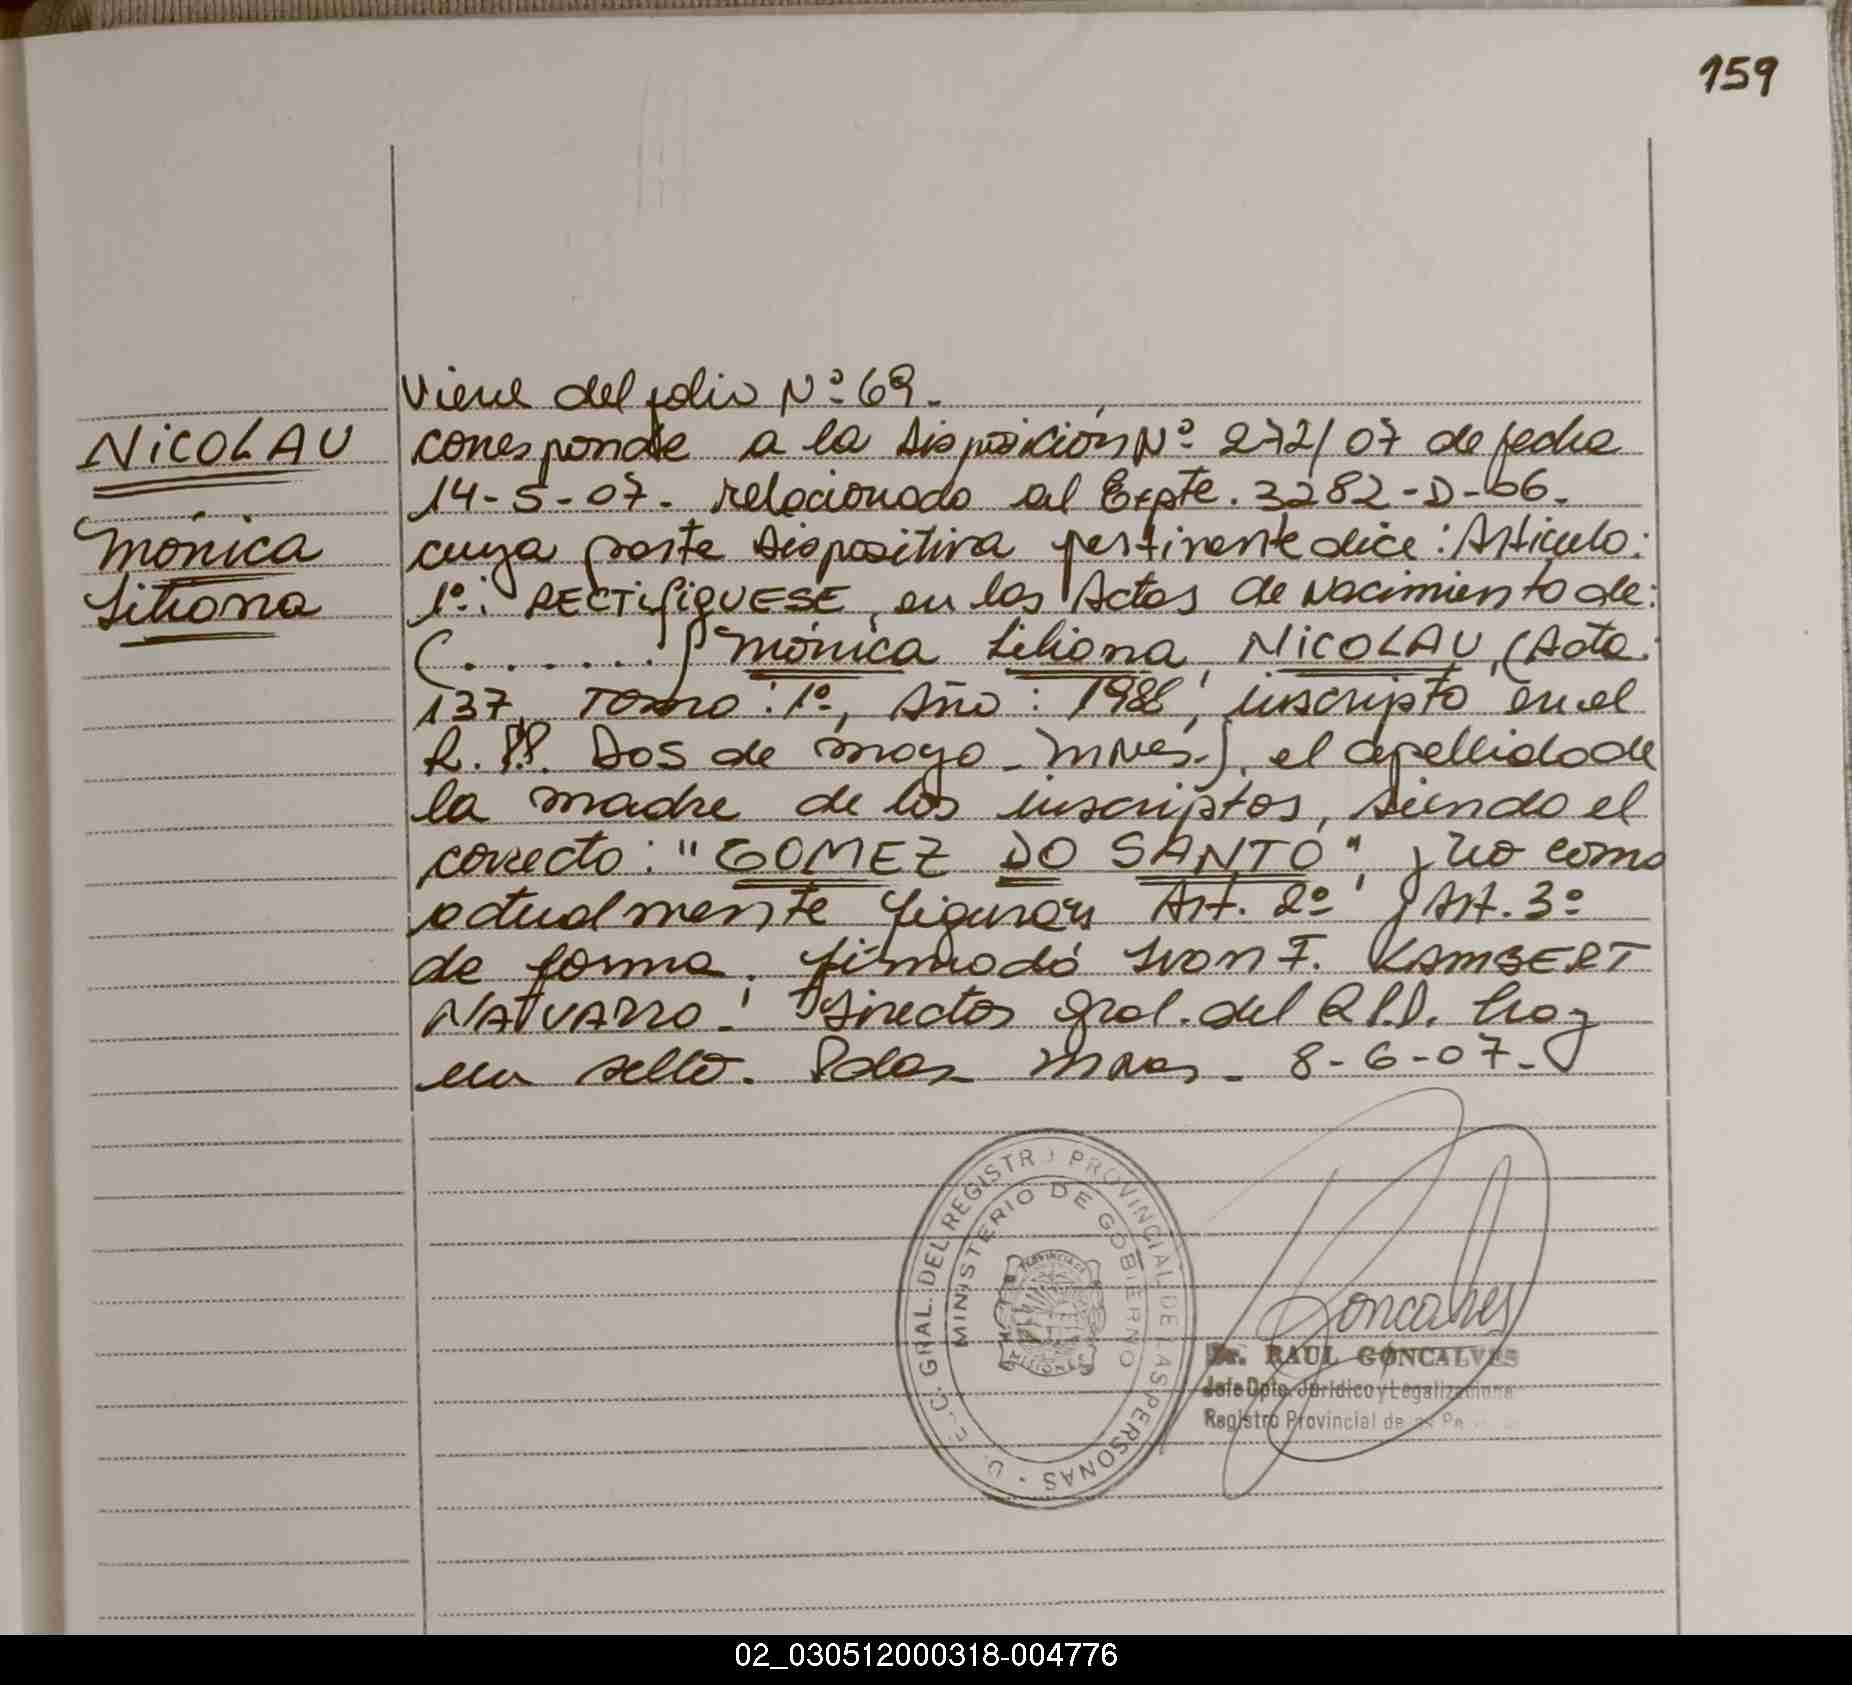 159
Viene del folio Nº 69.
NICOLAU
Mónica
Liliana
corresponde a la Disposición Nº 272/07 de fecha
14-5-07. relacionado al Expte. 3282-D-06.
cuya parte Dispositiva pertinente dice: Articulo:
1º: RECTIFIQUESE, en las Actas de Nacimiento de:
(.......) Mónica Liliana, NICOLAU, (Acta:
137, Tomo: 1º, Año: 1988, inscripto en el
R.PP. Dos de Mayo - Mnes.), el apellido de
la madre de los inscriptos, siendo el
correcto: "GOMEZ DO SANTO", y no como
actualmente figuran Art. 2º y Art. 3º
de forma. firmado Ivan F. KAMBERT
NAVARRO. Director Gral. del R.P.P. hay
un sello. Pdas Mnes - 8-6-07.-
D. E. C. GRAL. DEL REGISTRO PROVINCIAL DE LAS PERSONAS
MINISTERIO DE GOBIERNO
PROVINCIA DE
MISIONES
Goncalves
Dr. RAUL GONCALVES
Jefe Dpto. Jurídico y Legalizaciones
Registro Provincial de las
02_030512000318-004776